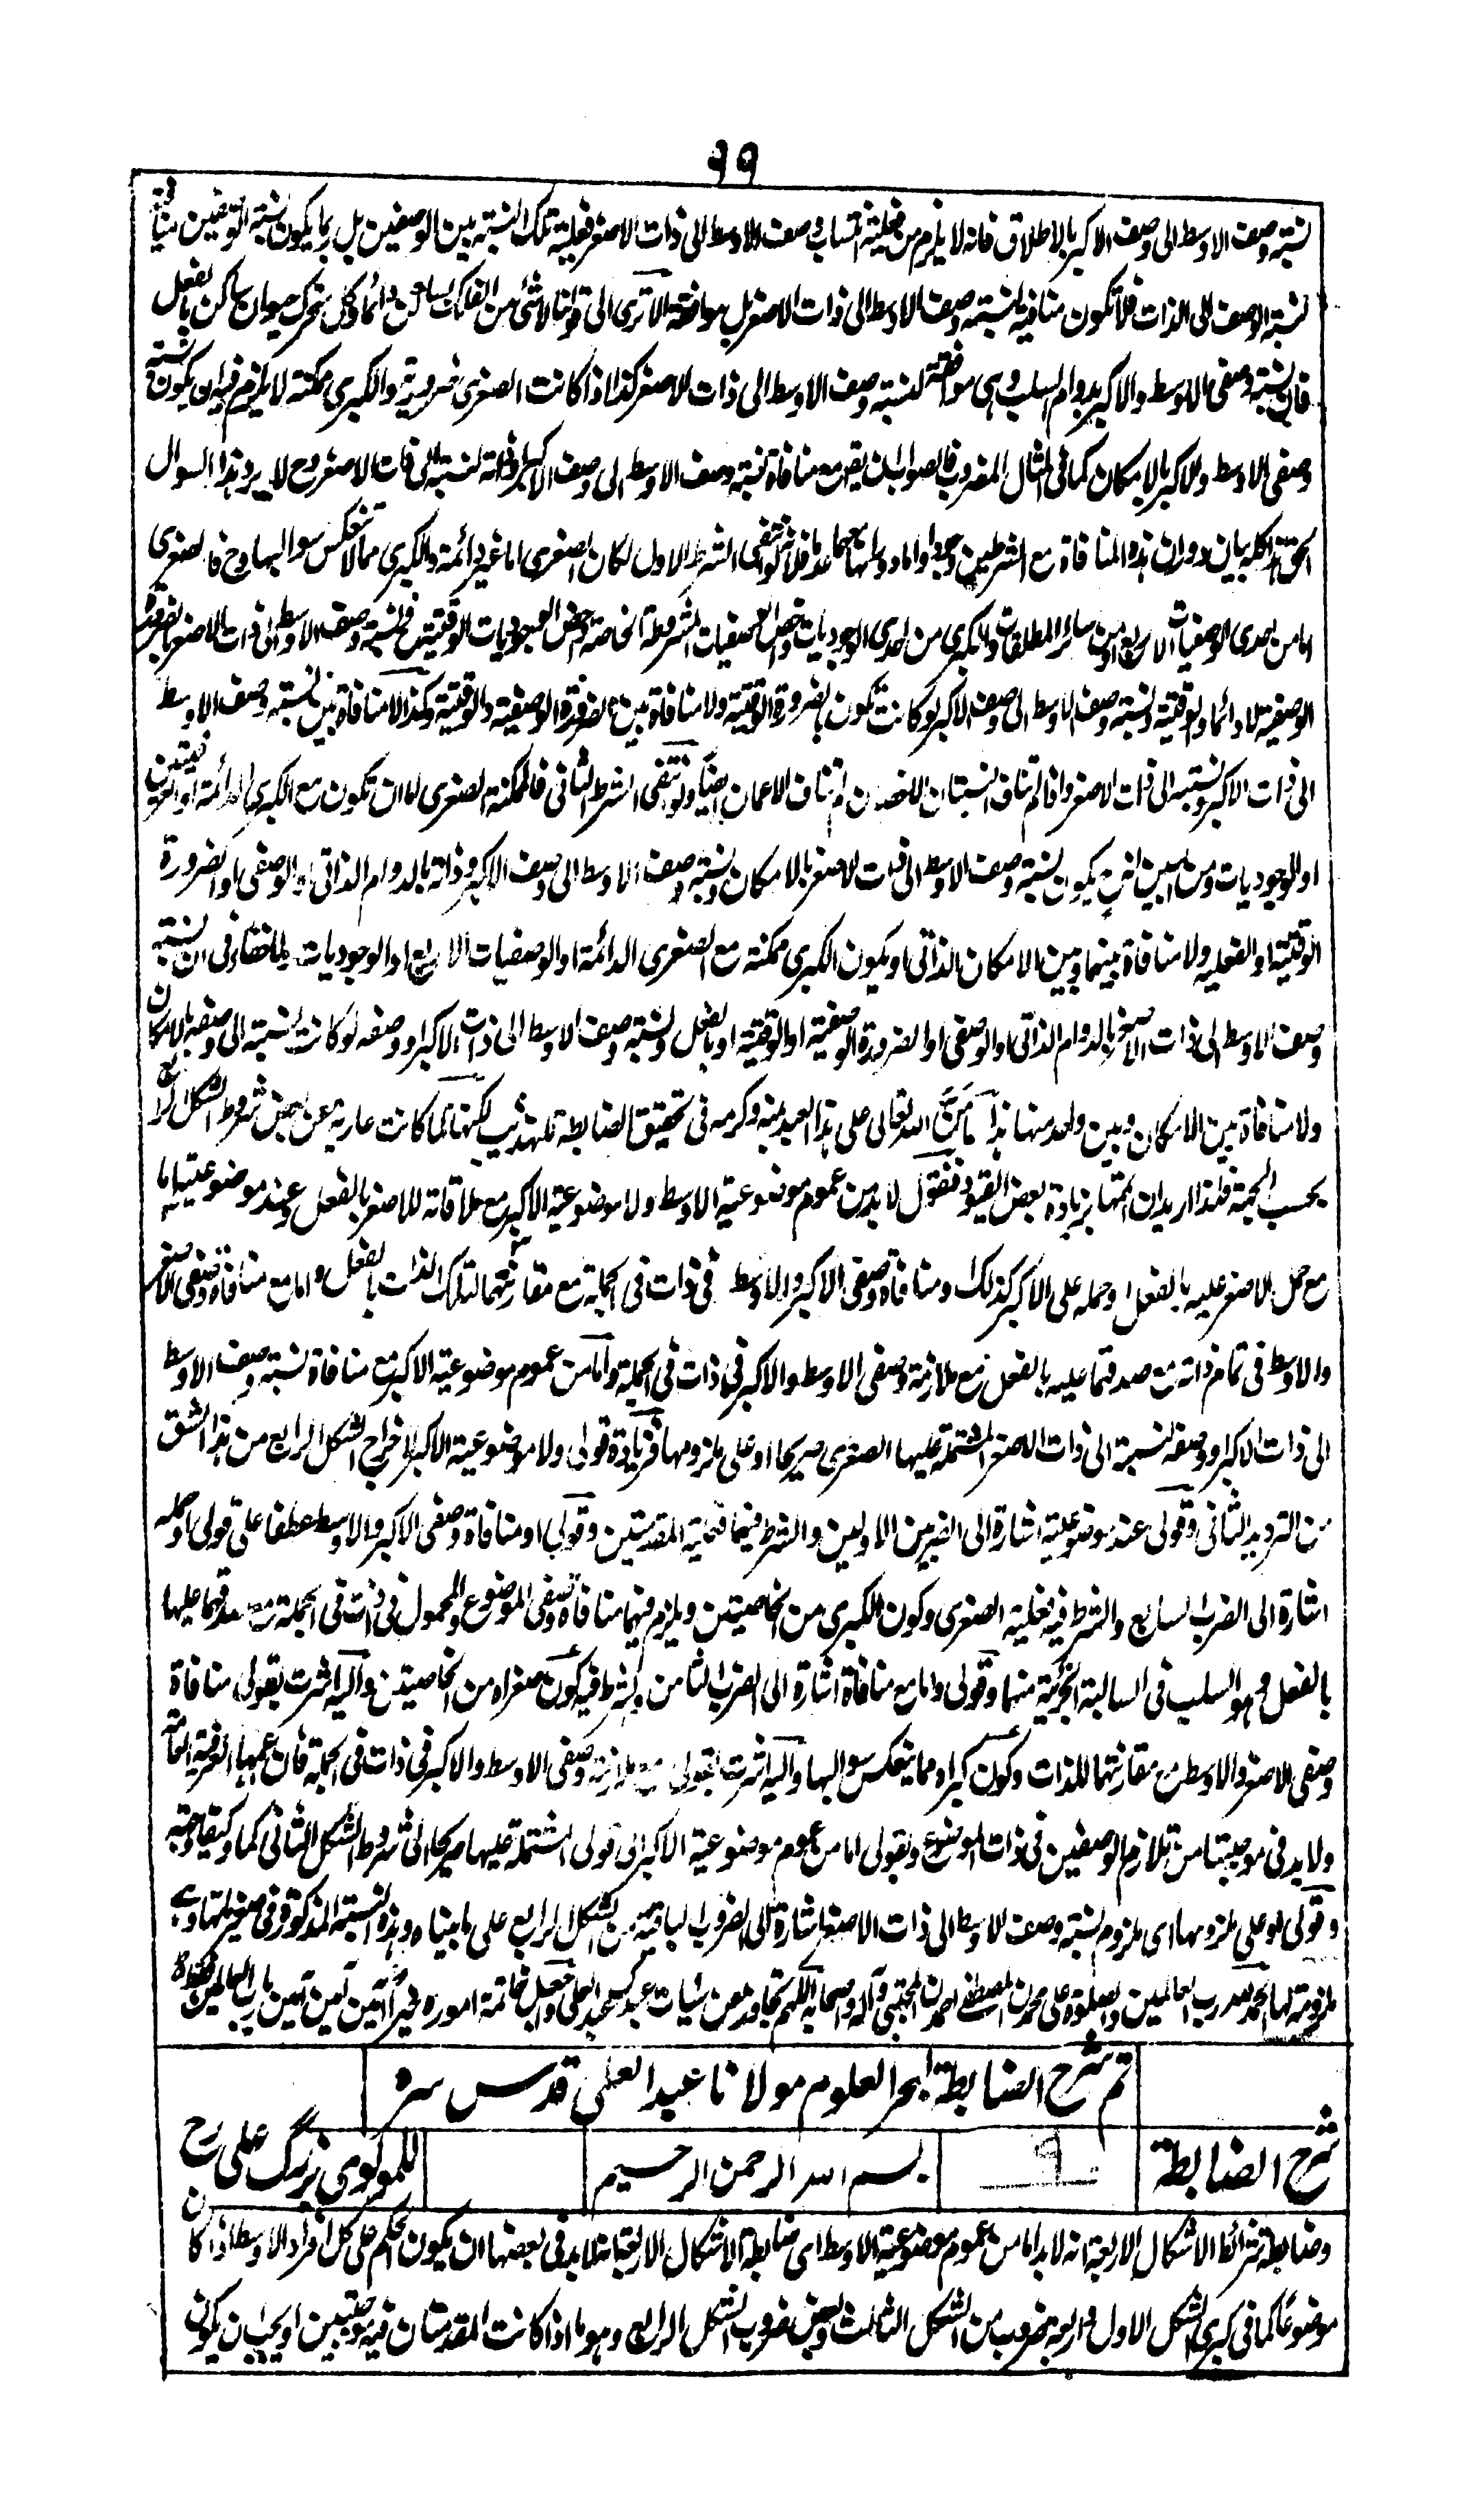 ٩٩
نسبة وصف الاوسط الى وصف الاكبر بالاطلاق فانه لا يلزم من فعلية انتساب وصف الاوسط الى ذات الاصغر فعلية تلك النسبة بين الوصفين بل ربما يكون نسبة الوصفين منافية
نسبة الوصف الى الذات فلا تكون منافية لنسبة وصف الاوسط الى ذات الاصغر بل موافقة الا ترى الى قولنا لا شئ من الفلك بساكن دائما وكل متحرك حيوان ساكن بالفعل
فان نسبة وصفى الاوسط والاكبر بدوام السلب وهى موافقة لنسبة وصف الاوسط الى ذات الاصغر كذا اذا كانت الصغرى ضرورية والكبرى ممكنة لا يلزم فيه ان يكون نسبة
وصفى الاوسط والاكبر بالامكان كما فى المثال المضروب فالصواب ان يقر مع منافاة نسبة وصف الاوسط الى وصف الاكبر او ذاته لنسبته الى ذات الاصغر وح لا يرد هذا السوال
الحق هذا كله بيان دوران هذه المنافاة مع الشرطين وجودا واما دورانها معهما عدما فلانه لو انتفى الشرط الاول لكان الصغرى اما غير دائمة والكبرى مما لا تنعكس سوالبها وح فالصغرى
اما من احدى الوصفيات الاربع او من سائر المطلقات والكبرى من احدى الوجوديات واخص الوصفيات المشروطة الخاصة واخص الوجوديات الوقتية فح نسبة وصف الاوسط الى ذات الاصغر بالضرورة
الوصفية لا دائما والوقتية ونسبة وصف الاوسط الى وصف الاكبر لو كانت تكون بالضرورة الوقتية ولا منافاة بين الضرورة الوصفية والوقتية وكذا لا منافاة بين نسبة وصف الاوسط
الى ذات الاكبر ونسبته الى ذات الاصغر واذا لم تناف النسبتان الاخصان لم تناف الاعمان ايضا ولو انتفى الشرط الثانى فالممكنة الصغرى اما ان تكون مع الكبرى الدائمة او العرفيتين
او الوجوديات ومن البين انه ح يكون نسبة وصف الاوسط الى ذات الاصغر بالامكان ونسبة وصف الاوسط الى وصف الاكبر وذاته بالدوام الذاتى او الوصفى او الضرورة
الوقتية او الفعليه ولا منافاة بينهما وبين الامكان الذاتى او يكون الكبرى ممكنة مع الصغرى الدائمة او الوصفيات الاربع او الوجوديات ولا خفاء فى ان نسبة
وصف الاوسط الى ذات الاصغر بالدوام الذاتى او الوصفى او الضرورة الوصفية او الوقتية او بالفعل ونسبة وصف الاوسط الى ذات الاكبر ووصفه لو كانت نسبة الى وصفه بالامكان
ولا منافاة بين الامكان وبين واحد منها هذا ما من الله تعالى على هذا العبد بمنه وكرمه فى تحقيق الضابطة للتهذيب لكنها لما كانت عارية عن بعض شروط الشكل الرابع
بحسب الجهة فلذا اريد ان اتمها بزيادة بعض القيود فنقول لا بد من عموم موضوعية الاوسط ولا موضوعية الاكبر مع ملاقاته للاصغر بالفعل وعند موضوعيتها اما
مع حمل الاصغر عليه بالفعل او حمله على الاكبر كذلك ومنافاة وصفى الاكبر والاوسط فى ذات فى الجملة مع مقارنتهما لتلك الذات بالفعل واما مع منافاة وصفى الاصغر
والاوسط فى تمام ذاته مع صدقهما عليه بالفعل مع ملازمة وصفى الاوسط والاكبر فى ذات فى الجملة واما من عموم موضوعية الاكبر مع منافاة نسبة وصف الاوسط
الى ذات الاكبر او وصفه لنسبته الى ذات الاصغر المشتملة عليها الصغرى صريحا او على ملزومها فزيادة قولى ولا موضوعية الاكبر لاخراج الشكل الرابع من هذا الشق
من الترديد الثانى وقولى عند موضوعيته اشارة الى الضربين الاولين والشرط فيهما فعلية المقدمتين وقولى او منافاة وصفى الاكبر والاوسط عطفا على قولى او حمله
اشارة الى الضرب السابع والشرط فيه فعلية الصغرى وكون الكبرى من الخاصيتين ويلزم فيهما منافاة وصفى الموضوع والمحمول فى ذات فى الجملة مع صدقهما عليها
بالفعل وهو السلب فى السالبة الجزئية منهما وقولى واما مع منافاة اشارة الى الضرب الثامن والشرط فيه كون صغراه من الخاصيتين واليه اشرت بقولى منافاة
وصفى الاصغر والاوسط مع مقارنتهما للذات وكون كبراه مما ينعكس سوالبها واليه اشرت بقولى مع ملازمة وصفى الاوسط والاكبر فى ذات فى الجملة فان اعمها العرفية العامة
ولا بد فى موجبتها من تلازم الوصفين فى ذات الموضوع وبقولى اما من عموم موضوعية الاكبر الى قولى المشتملة عليها صريحا الى شروط الشكل الثانى كما وكيفا وجهة
وقولى او على ملزومها اى ملزوم نسبة وصف الاوسط الى ذات الاصغر اشارة الى الضروب الباقية من الشكل الرابع على ما بيناه وهذه النسبة المذكورة فى صغرياتها وهى
ملزومة لها الحمد لله رب العالمين والصلوة على محمد المصطفى احمد المجتبى وآله واصحابه اللهم تجاوز عن سيئات عبدك عبد العلى واجعل خاتمة اموره خيرا آمين آمين آمين يا رب العالمين
تم شرح الضابطة لبحر العلوم مولانا عبد العلى قدس سره
شرح الضابطة ٩ بسم الله الرحمن الرحيم للمولوى بزرگ على رح
وضابطة شرائط الاشكال الاربعة انه لا بد اما من عموم موضوعية الاوسط اى ضابطة الاشكال الاربعة انه لا بد فى بعضها ان يكون الحكم على كل افراد الاوسط اذا كان
موضوعا كما فى كبرى الشكل الاول واربعة ضروب من الشكل الثالث وبعض ضروب الشكل الرابع وهو ما اذا كانت المقدمتان فيه موجبتين او يجب ان يكون